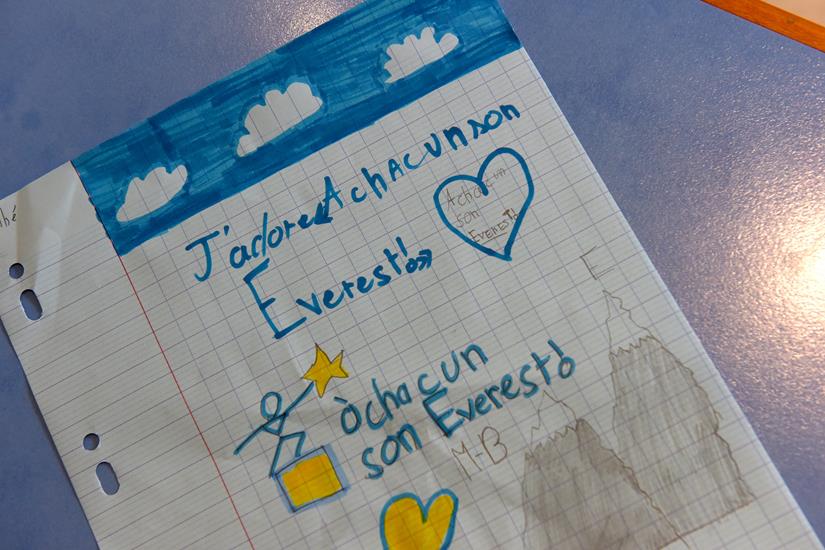 J'adore « A chacun son
Everest! »
A chacun
son
Everest!
E
òchacun
son Everest!
M-B